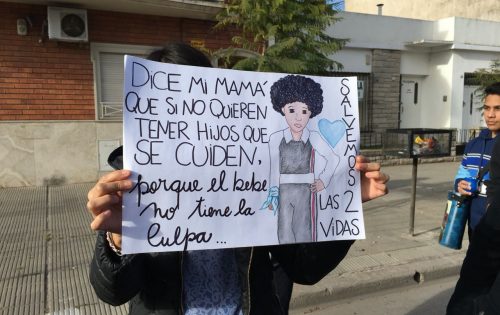 DICE MI MAMÁ
QUE SI NO QUIEREN
TENER HIJOS QUE
SE CUIDEN,
porque el bebe
no tiene la
culpa...
SALVEMOS
LAS 2
VIDAS